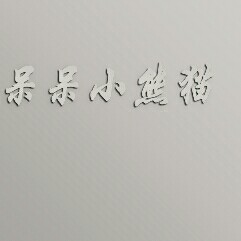 呆呆小熊猫